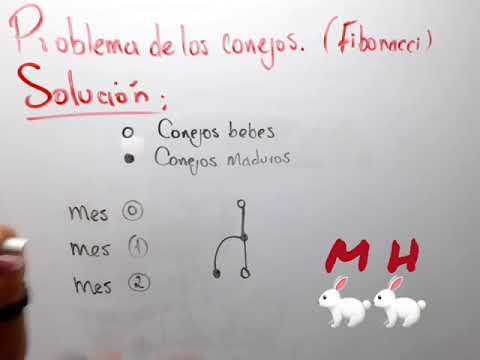 Problema de los conejos. (Fibonacci)
Solución:
Conejos bebes
Conejos maduros
mes 0
mes 1
mes 2
M H